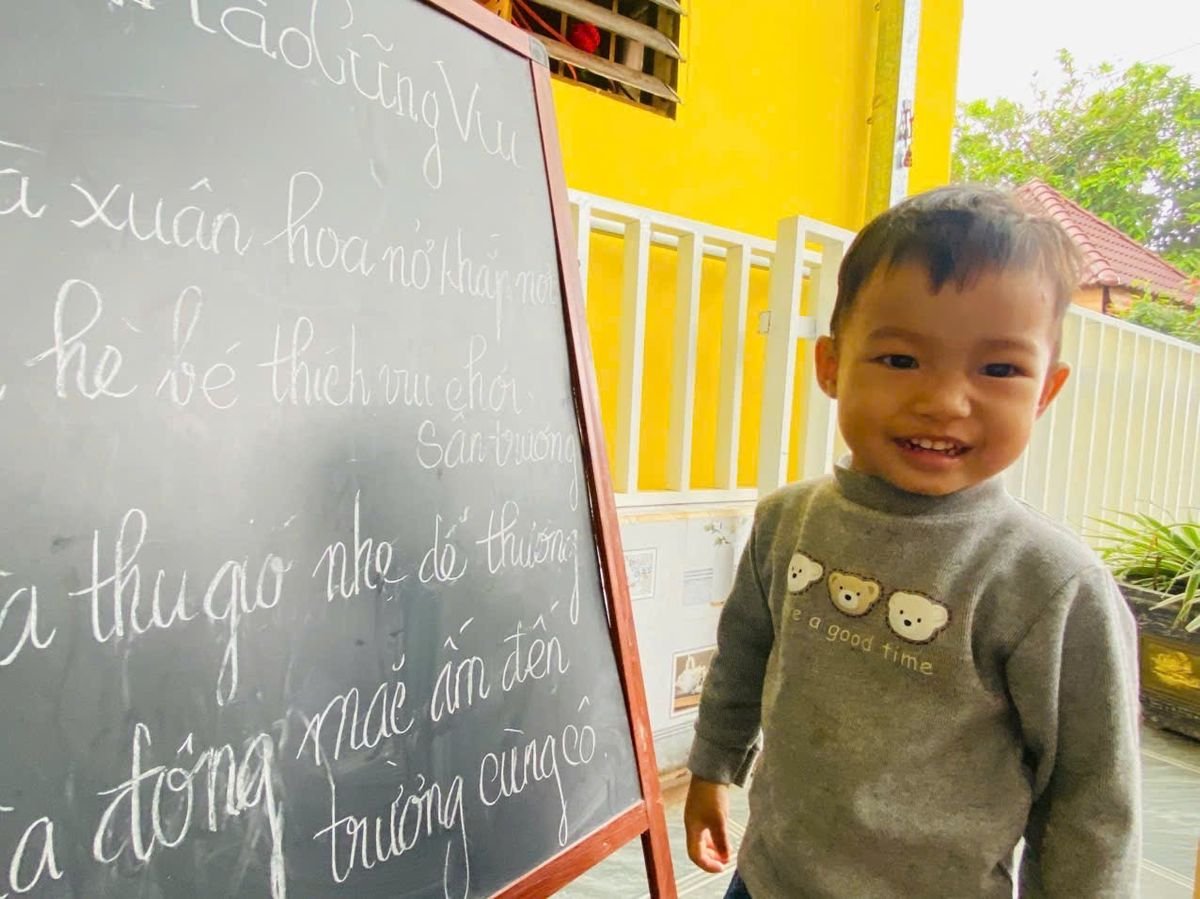 nào Cũng Vui
a xuân hoa nở khắp nơi
hè bé thích vui chơi
Sân trường
a thu gió nhẹ dễ thương
a đông mặc ấm đến
trường cùng cô.
e a good time